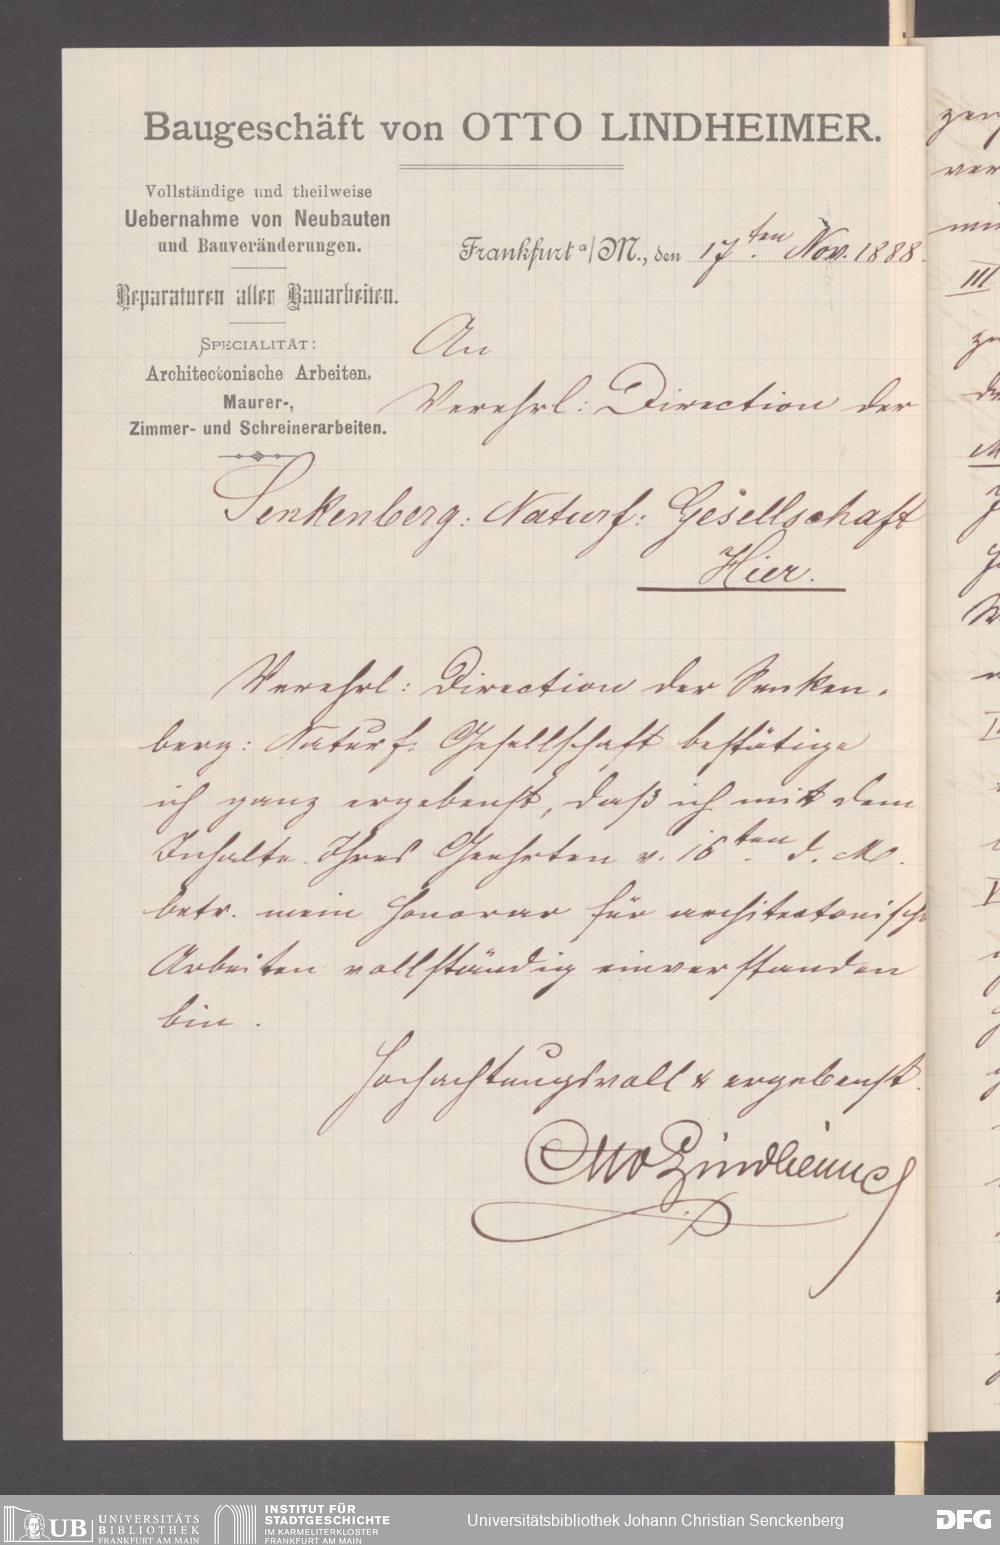 Baugeschäft von OTTO LINDHEIMER.
Vollständige und theilweise
Uebernahme von Neubauten
und Bauveränderungen.
Reparaturen aller Bauarbeiten.
SPECIALITÄT:
Architectonische Arbeiten,
Maurer-,
Zimmer- und Schreinerarbeiten.
Frankfurt a/M., den 17.ten Nov. 1888.
An
Verehrl: Direction der
Senkenberg: Naturf: Gesellschaft
Hier.
Verehrl: Direction der Senken-
berg: Naturf: Gesellschaft bestätige
ich ganz ergebenst, daß ich mit dem
Inhalte Ihres Geehrten v. 16.ten d. M.
betr. mein Honorar für architectonische
Arbeiten vollständig einverstanden
bin.
Hochachtungsvoll & ergebenst.
Otto Lindheimer
III
UB UNIVERSITÄTS
BIBLIOTHEK
FRANKFURT AM MAIN
INSTITUT FÜR
STADTGESCHICHTE
IM KARMELITERKLOSTER
FRANKFURT AM MAIN
Universitätsbibliothek Johann Christian Senckenberg
DFG